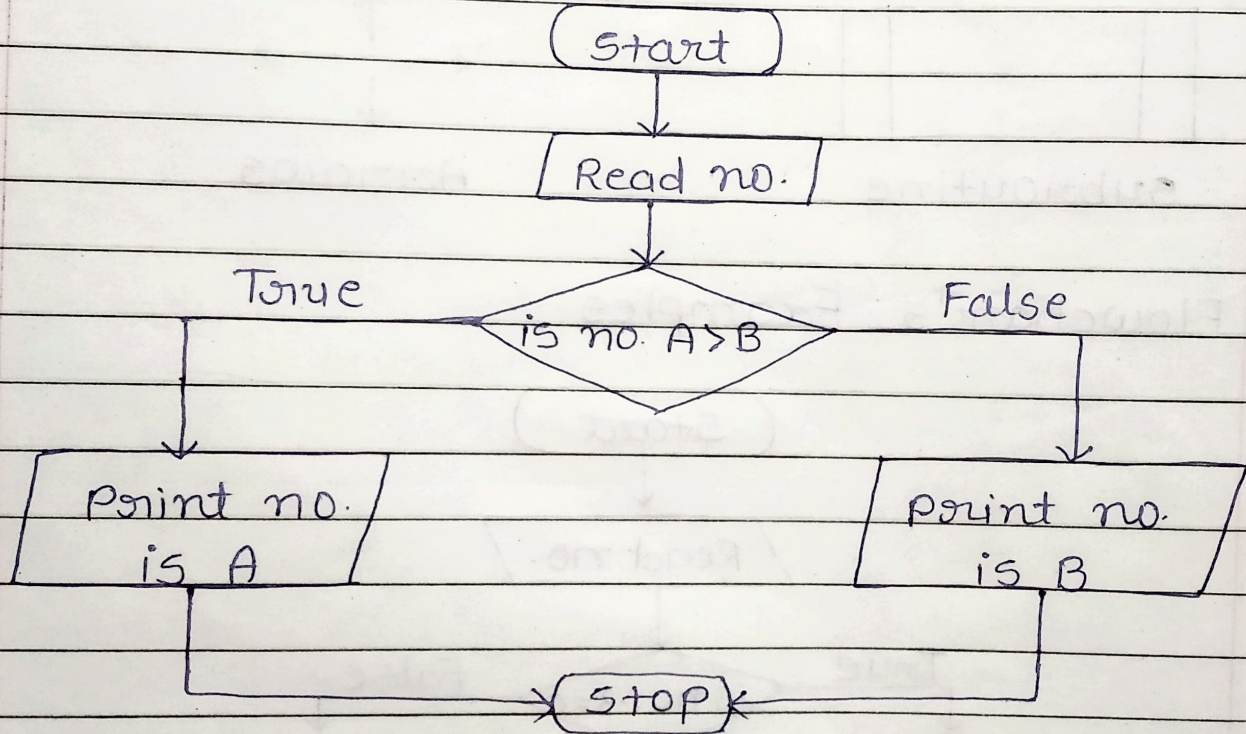 Start
Read no.
True
False
is no. A>B
Print no.
is A
print no.
is B
Stop